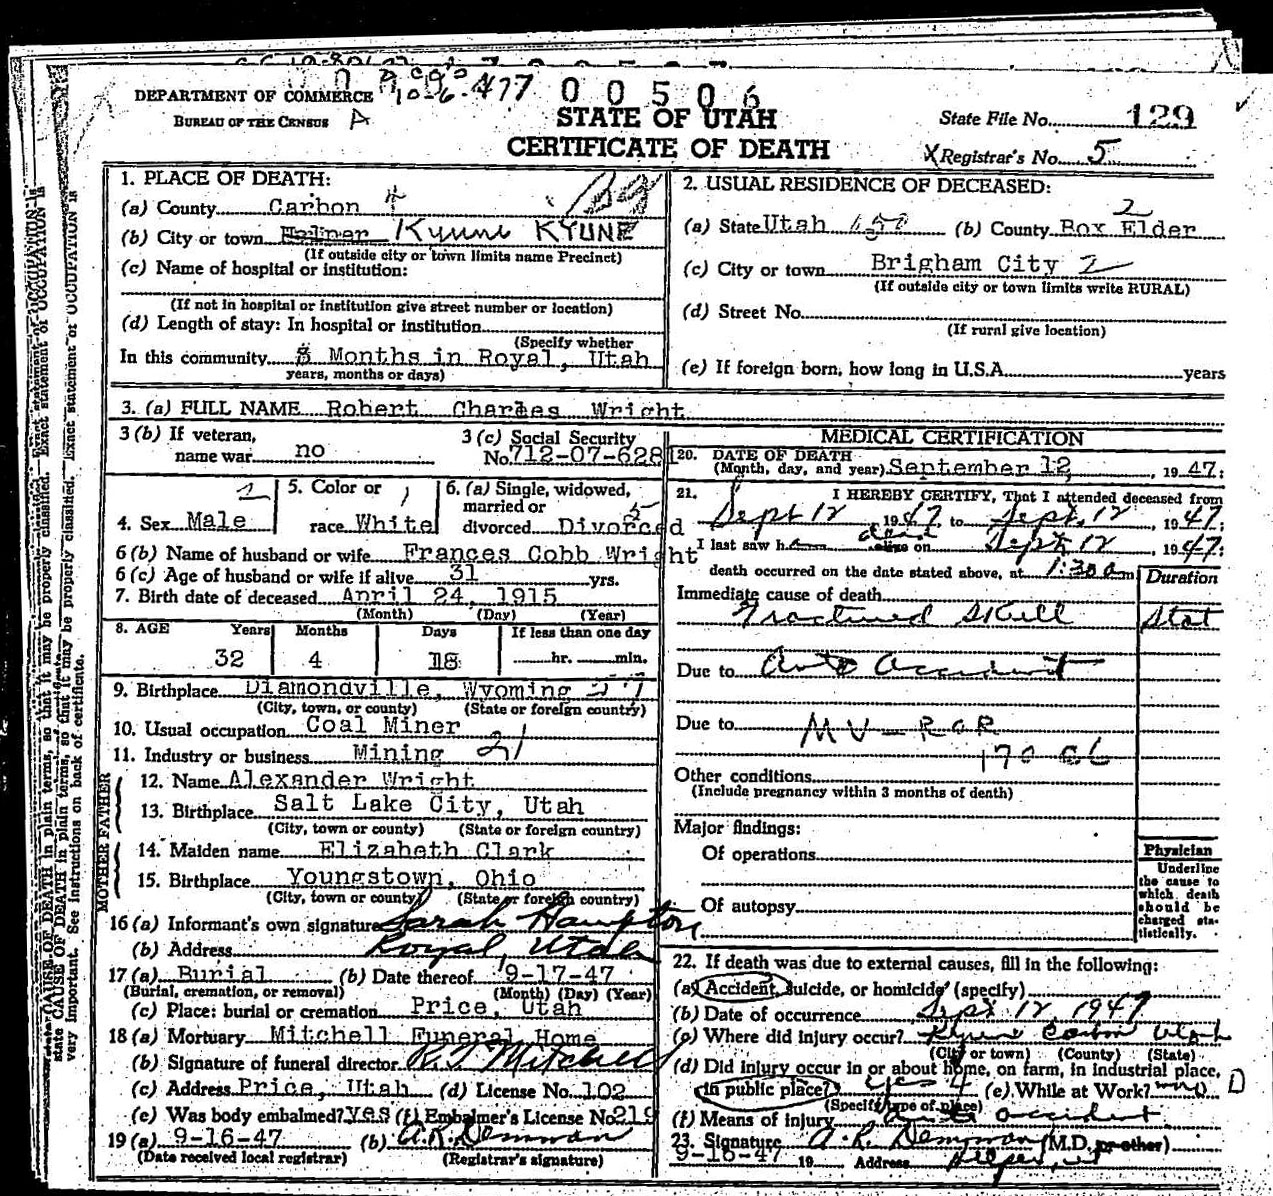 DEPARTMENT OF COMMERCE
BUREAU OF THE CENSUS A
10-6-477
00506
STATE OF UTAH
CERTIFICATE OF DEATH
State File No. 129
X Registrar's No. 5
1. PLACE OF DEATH:
(a) County Carbon 4
(b) City or town Helper Kyune KYUNE
(If outside city or town limits name Precinct)
(c) Name of hospital or institution:
(If not in hospital or institution give street number or location)
(d) Length of stay: In hospital or institution
(Specify whether
In this community 3 Months in Royal, Utah
years, months or days)
2. USUAL RESIDENCE OF DECEASED:
(a) State Utah (b) County Box Elder 2
(c) City or town Brigham City 2
(If outside city or town limits write RURAL)
(d) Street No.
(If rural give location)
(e) If foreign born, how long in U.S.A. years
3. (a) FULL NAME Robert Charles Wright
3 (b) If veteran,
name war no
3 (c) Social Security
No. 712-07-6281
4. Sex Male
5. Color or
race White
6. (a) Single, widowed,
married or
divorced Divorced
6 (b) Name of husband or wife Frances Cobb Wright
6 (c) Age of husband or wife if alive 31 yrs.
7. Birth date of deceased April 24, 1915
(Month) (Day) (Year)
8. AGE Years Months Days If less than one day
32 4 18 hr. min.
9. Birthplace Diamondville, Wyoming
(City, town, or county) (State or foreign country)
10. Usual occupation Coal Miner
11. Industry or business Mining 21
FATHER
12. Name Alexander Wright
13. Birthplace Salt Lake City, Utah
(City, town or county) (State or foreign country)
MOTHER
14. Maiden name Elizabeth Clark
15. Birthplace Youngstown, Ohio
(City, town or county) (State or foreign country)
16 (a) Informant's own signature Sarah Hampton
(b) Address Royal, Utah
17 (a) Burial (b) Date thereof 9-17-47
(Burial, cremation, or removal) (Month) (Day) (Year)
(c) Place: burial or cremation Price, Utah
18 (a) Mortuary Mitchell Funeral Home
(b) Signature of funeral director R. T. Mitchell
(c) Address Price, Utah (d) License No. 102
(e) Was body embalmed? yes (f) Embalmer's License No. 219
19 (a) 9-16-47 (b) A.R. Demman
(Date received local registrar) (Registrar's signature)
MEDICAL CERTIFICATION
20. DATE OF DEATH
(Month, day, and year) September 12, 1947:
21. I HEREBY CERTIFY, That I attended deceased from
Sept 12 1947, to Sept. 12, 1947:
I last saw him dead alive on Sept 12, 1947:
death occurred on the date stated above, at 1:30 am
Duration
Immediate cause of death
Fractured Skull Stat
Due to Auto Accident
Due to MV - ROR
170 c6
Other conditions
(Include pregnancy within 3 months of death)
Major findings:
Of operations
Of autopsy
Physician
Underline
the cause to
which death
should be
charged sta-
tistically.
22. If death was due to external causes, fill in the following:
(a) Accident, suicide, or homicide (specify)
(b) Date of occurrence Sept 12, 1947
(c) Where did injury occur? Kyune Carbon Utah
(City or town) (County) (State)
(d) Did injury occur in or about home, on farm, in industrial place,
in public place? yes 4 (e) While at Work? no D
(Specify type of place)
(f) Means of injury auto accident
23. Signature A. R. Demman (M.D. or other)
9-16-47 19 Address Helper, Ut